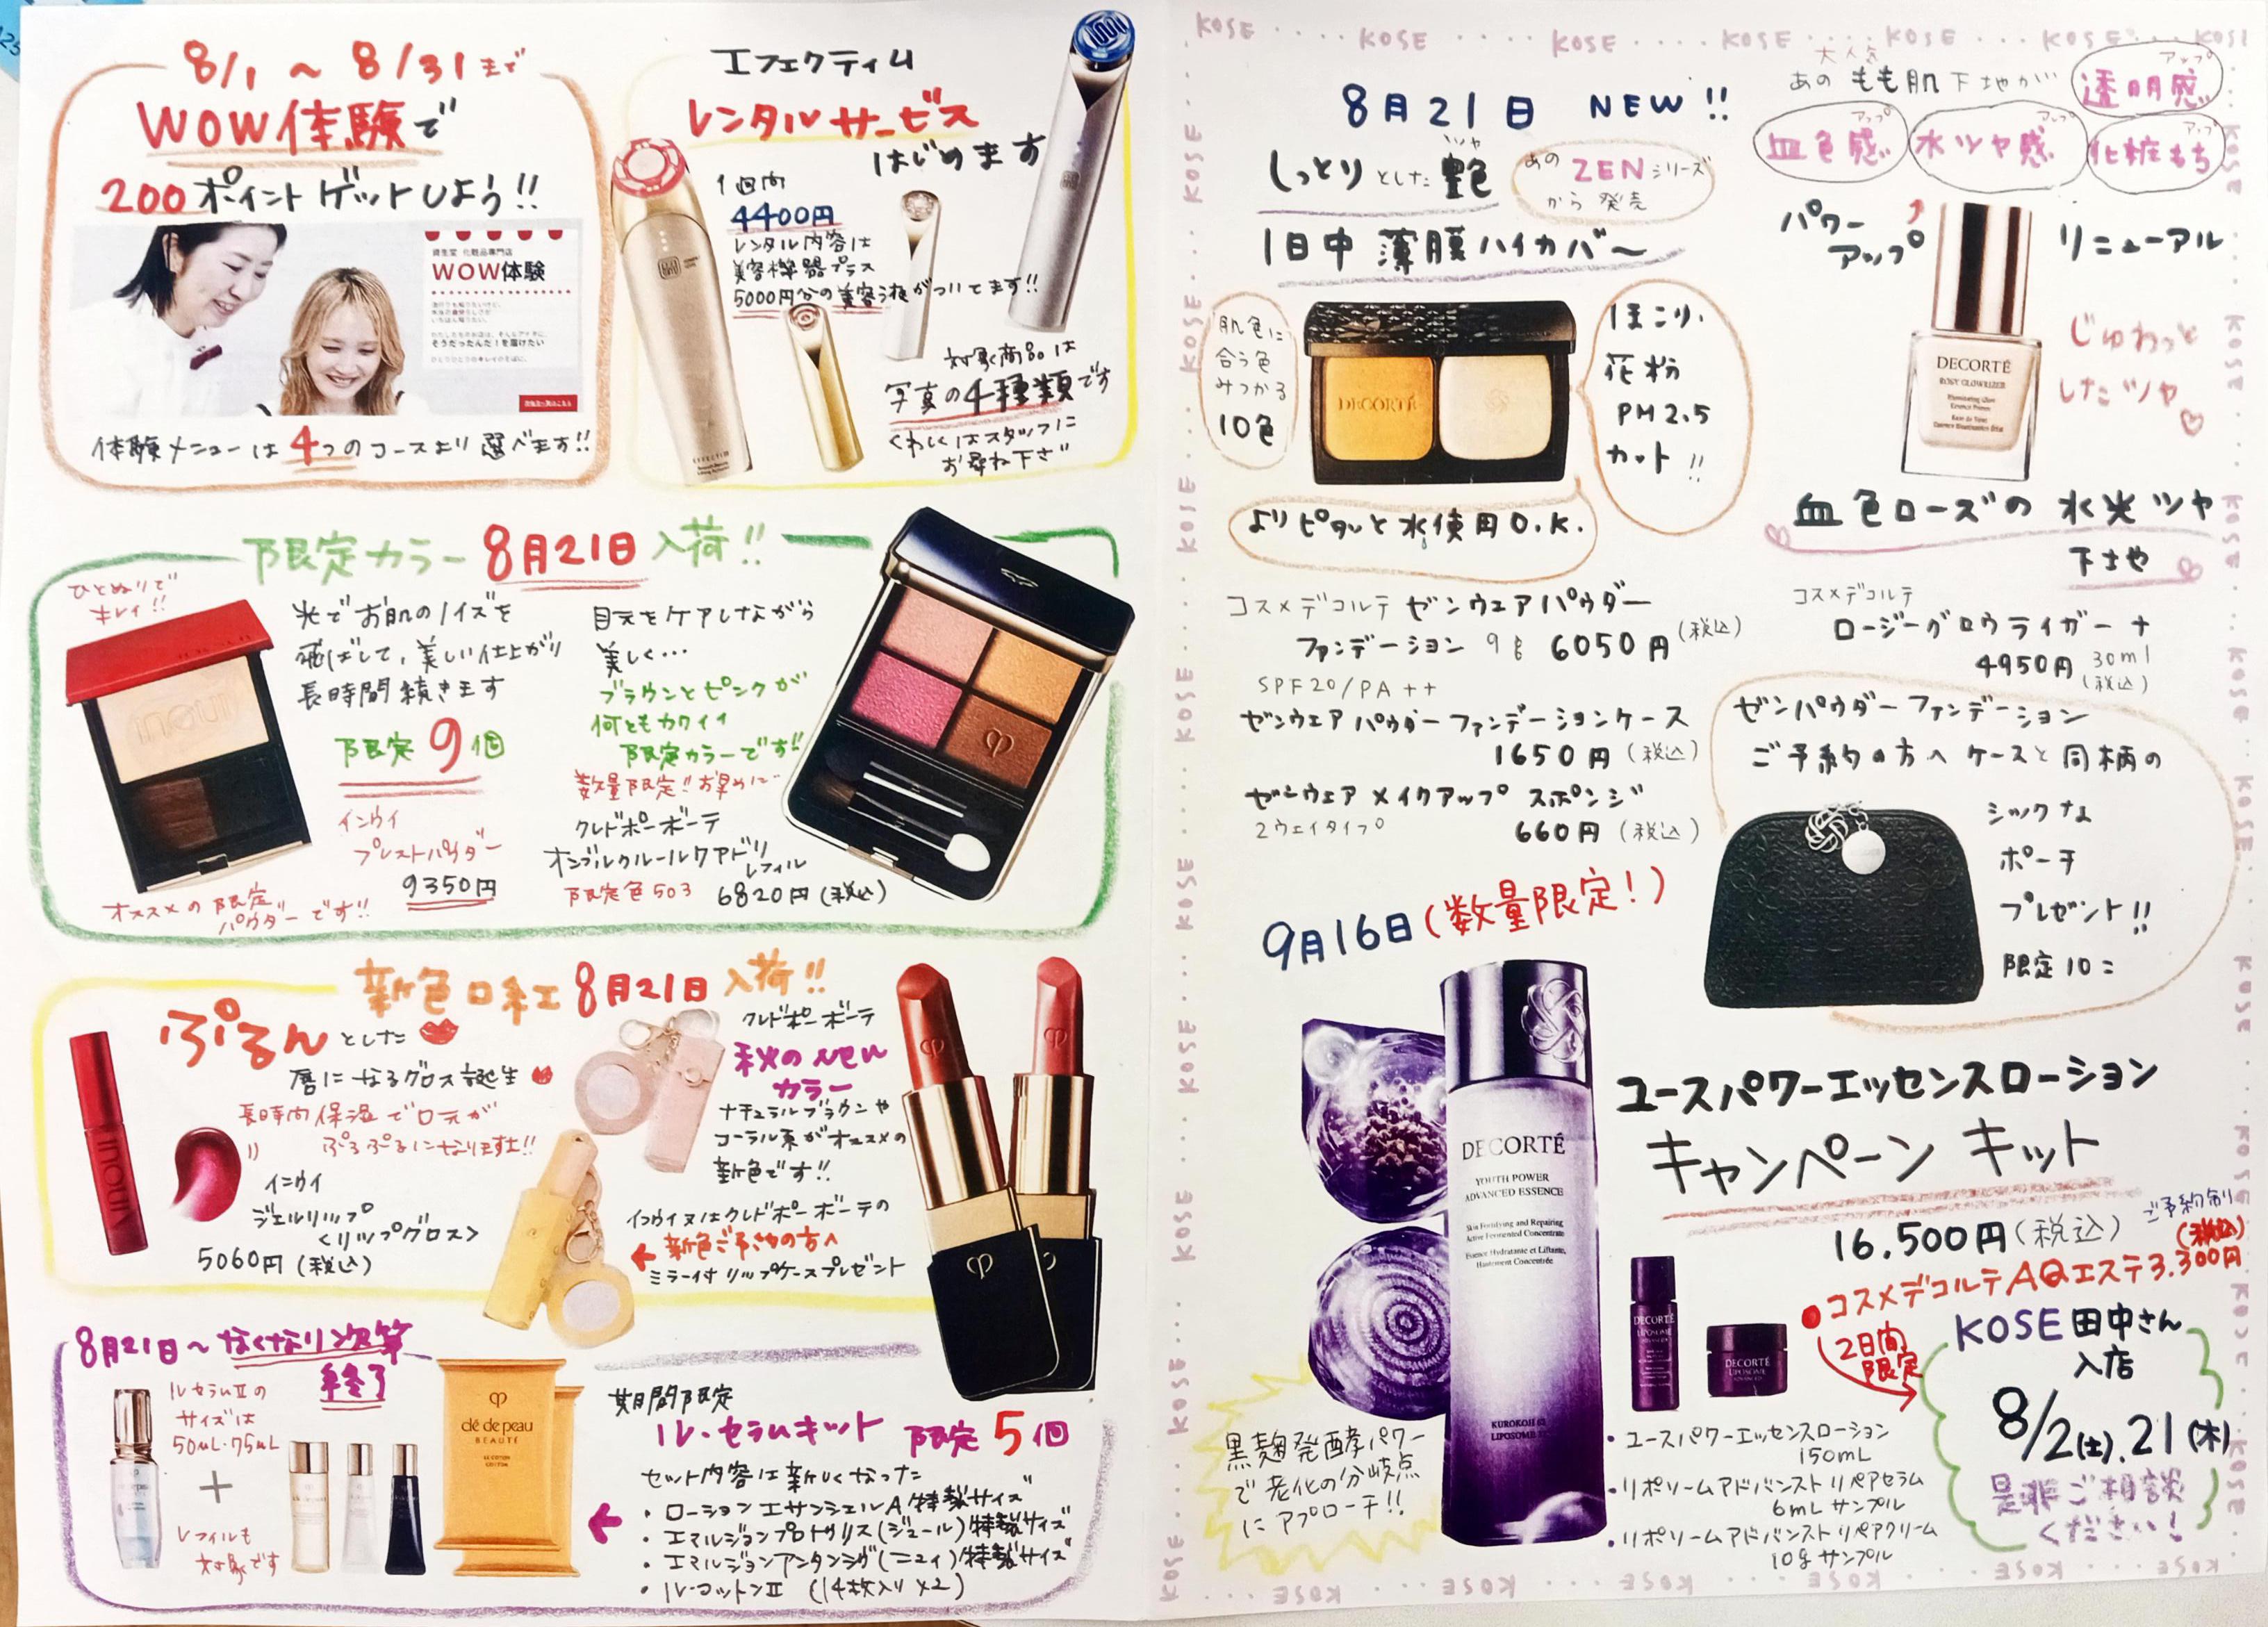 8/1 〜 8/31まで
WOW体験で
200ポイントゲットしよう!!
資生堂 化粧品専門店
WOW体験
そうだったんだ!を届けたい
体験メニューは4つのコースより選べます!!
エフェクティム
レンタルサービス
はじめます
1週間
4400円
レンタル内容は
美容機器プラス
5000円分の美容液がついてます!!
対象商品は
写真の4種類です
くわしくはスタッフに
お尋ね下さい
限定カラー 8月21日 入荷!!
ひとぬりで
キレイ!!
光でお肌のノイズを
飛ばして、美しい仕上がり
長時間続きます
限定9個
インウイ
プレストパウダー
9350円
オススメの限定
パウダーです!!
inoui
目元をケアしながら
美しく…
ブラウンとピンクが
何ともカワイイ
限定カラーです!!
数量限定!!お早めに
クレドポーボーテ
オンブルクルールクアドリ
レフィル
限定色503 6820円(税込)
新色口紅 8月21日 入荷!!
ぷるんとした
唇になるグロス誕生
長時間保湿で口元が
ぷるぷるになります!!
INOUI
インウイ
ジェルリップ
<リップグロス>
5060円(税込)
クレドポーボーテ
秋のNEW
カラー
ナチュラルブラウンや
コーラル系がオススメの
新色です!!
インウイ又はクレドポーボーテの
新色ご予約の方へ
ミラー付リップケースプレゼント
8月21日〜なくなり次第
終了
ル・セラムⅡの
サイズは
50mL・75mL
+
レフィルも
対象です
clé de peau
BEAUTÉ
LE COTON
COTTON
期間限定
ル・セラムキット 限定5個
セット内容は新しくなった
・ローションエサンシエルA特製サイズ
・エマルションプロトゥリス(ジュール)特製サイズ
・エマルションアンタンシヴ(ニュイ)特製サイズ
・ル・コットンⅡ (14枚入り×2)
KOSE KOSE KOSE KOSE KOSE KOSE KOSE
8月21日 NEW!!
しっとりとした艶
ツヤ
あのZENシリーズ
から発売
1日中 薄膜ハイカバー
肌色に
合う色
みつかる
10色
DECORTÉ
ほこり・
花粉
PM2.5
カット!!
よりピタッと水使用O.K.
コスメデコルテ ゼンウェアパウダー
ファンデーション 9g 6050円(税込)
SPF20/PA++
ゼンウェアパウダーファンデーションケース
1650円(税込)
ゼンウェア メイクアップ スポンジ
2ウェイタイプ 660円(税込)
大人気
あのもも肌下地が
透明感アップ
血色感アップ
水ツヤ感アップ
化粧もちアップ
パワー
アップ
リニューアル
DECORTÉ
ROSY GLOWRIZER
Illuminating Glow
Essence Primer
じゅわっと
したツヤ♡
血色ローズの水光ツヤ
下地
コスメデコルテ
ロージーグロウライザー+
4950円 30ml
(税込)
ゼンパウダーファンデーション
ご予約の方へケースと同柄の
シックな
ポーチ
プレゼント!!
限定10こ
9月16日(数量限定!)
DECORTÉ
YOUTH POWER
ADVANCED ESSENCE
Skin Fortifying and Repairing
Active Fermented Concentrate
KUROKOJI
LIPOSOME
黒麹発酵パワー
で老化の分岐点
にアプローチ!!
ユースパワーエッセンスローション
キャンペーン キット
16,500円(税込)
DECORTÉ
LIPOSOME
DECORTÉ
LIPOSOME
・ユースパワーエッセンスローション
150mL
・リポソームアドバンスト リペアセラム
6mLサンプル
・リポソームアドバンスト リペアクリーム
10gサンプル
ご予約制
(税込)
●コスメデコルテAQエステ3,300円
2日間
限定
KOSE田中さん
入店
8/2(土).21(木)
是非ご相談
ください!
KOSE KOSE KOSE KOSE KOSE KOSE